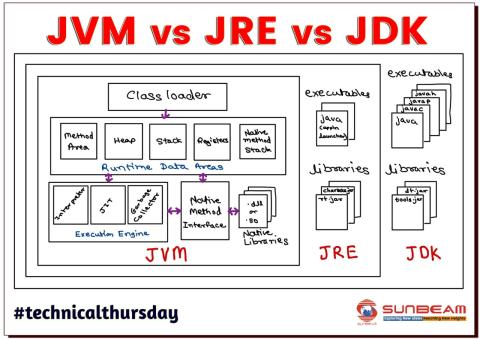 JVM vs JRE vs JDK
Class loader
Method
Area
Heap
Stack
Registers
Native
Method
Stack
Runtime Data Areas
Interpreter
JIT
Garbage
Collector
Execution Engine
Native
Method
Interface
.dll
or
.so
Native
Libraries
JVM
executables
java
(appln
launcher)
libraries
charsets.jar
rt.jar
JRE
executables
javah
javap
javac
java
libraries
dt.jar
tools.jar
JDK
#technicalthursday
SUNBEAM